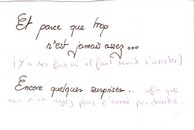 Et parce que trop
n'est jamais assez...
(Y a des fois où il faut savoir s'arrêter)
Encore quelques surprises... afin que
vous soyez pour l'année prochaine.